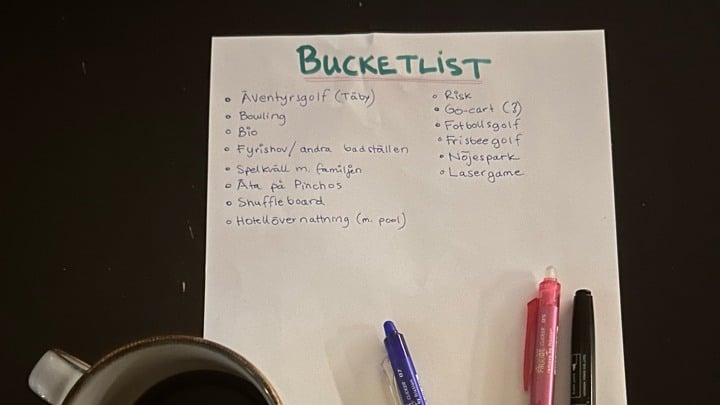 BUCKETLIST
Äventyrsgolf (Täby)
Bowling
Bio
Fyrishov/andra badställen
Spelkväll m. familjen
Äta på Pinchos
Shuffleboard
Hotellövernattning (m. pool)
Risk
Go-cart (?)
Fotbollsgolf
Frisbeegolf
Nöjespark
Lasergame